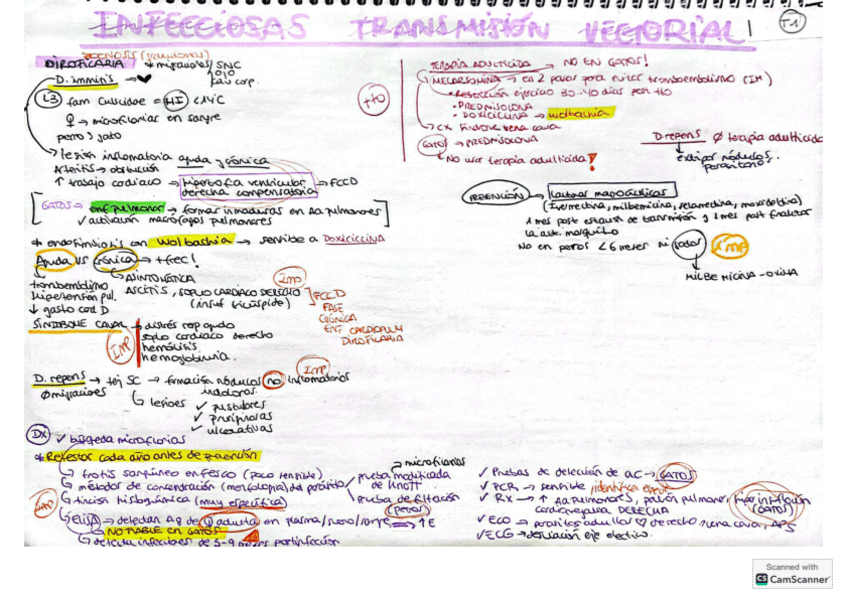 INFECCIOSAS TRANSMISIÓN VECTORIAL
T1
ZOONOSIS
DIROFILARIA * migraciones SNC
ojo
cav corp.
D. immitis → ♥
L3 fam Culicidae = HI
♀ → microfilarias en sangre
perro y gato
→ lesión inflamatoria aguda y crónica
Arteritis → obstrucción
↑ trabajo cardiaco → hipertrofia ventricular derecha compensatoria → FCCD
GATOS → enf pulmonar → formas inmaduras en Aa pulmonares
✓ activación macrófagos pulmonares
* endosimbiosis con wolbachia → sensible a DOXICICLINA
Aguda vs crónica → +frec!
tromboembolismo
hipertensión pul.
↓ gasto card D
ASINTOMÁTICA
IMP
ASCITIS, SOPLO CARDIACO DERECHO (insuf tricúspide)
FCCD
FASE CRÓNICA
ENF CARDIOPULM
DIROFILARIA
SÍNDROME CAVAL → distrés resp agudo
soplo cardiaco derecho
hemólisis
hemoglobinuria.
IMP
D. repens → tej SC → formación nódulos no inflamatorios
IMP
indoloros.
Ø migraciones
↳ lesiones ✓ pustulares
✓ pruriginosas
✓ ulcerativas
DX ✓ búsqueda microfilarias
* Retestar cada año antes de prevención
↳ frotis sanguíneo en fresco (poco sensible)
↳ métodos de concentración (morfología) del parásito
microfilarias
prueba modificada de Knott
prueba de filtración (perros)
↳ tinción histoquímica (muy específica)
IMP
↳ ELISA → detectan Ag de ♀ adulta en plasma/suero/sangre ⇒ ↑E
↳ NO FIABLE EN GATOS
↳ detecta infecciones de 5-9 meses postinfección
✓ Pruebas de detección de AC → GATOS
✓ PCR → sensible, identifica especie
✓ RX → ↑ Aa pulmonares, patrón pulmonar, hiperinsuflación (GATOS)
cardiomegalia DERECHA
✓ ECO → parásitos adultos ♥ derecho, vena cava, APs
✓ ECG → desviación eje eléctrico.
TTO
TERAPIA ADULTICIDA → NO EN GATOS!
MELARSOMINA → en 2 pasos para evitar tromboembolismo (IM)
• Restricción ejercicio 30-40 días post tto
• PREDNISOLONA
• DOXICICLINA → wolbachia
→ CX síndrome vena cava
GATOS → PREDNISOLONA
↳ No usar terapia adulticida!
D. repens Ø terapia adulticida
extirpar nódulos parasitarios.
PREVENCIÓN → lactonas macrocíclicas
(ivermectina, milbemicina, selamectina, moxidectina)
1 mes post estación de transmisión y 1 mes post finalizar la act. mosquito
No en perros < 6 meses ni gatos
IMP
MILBEMICINA-OXIMA
Scanned with
CS CamScanner